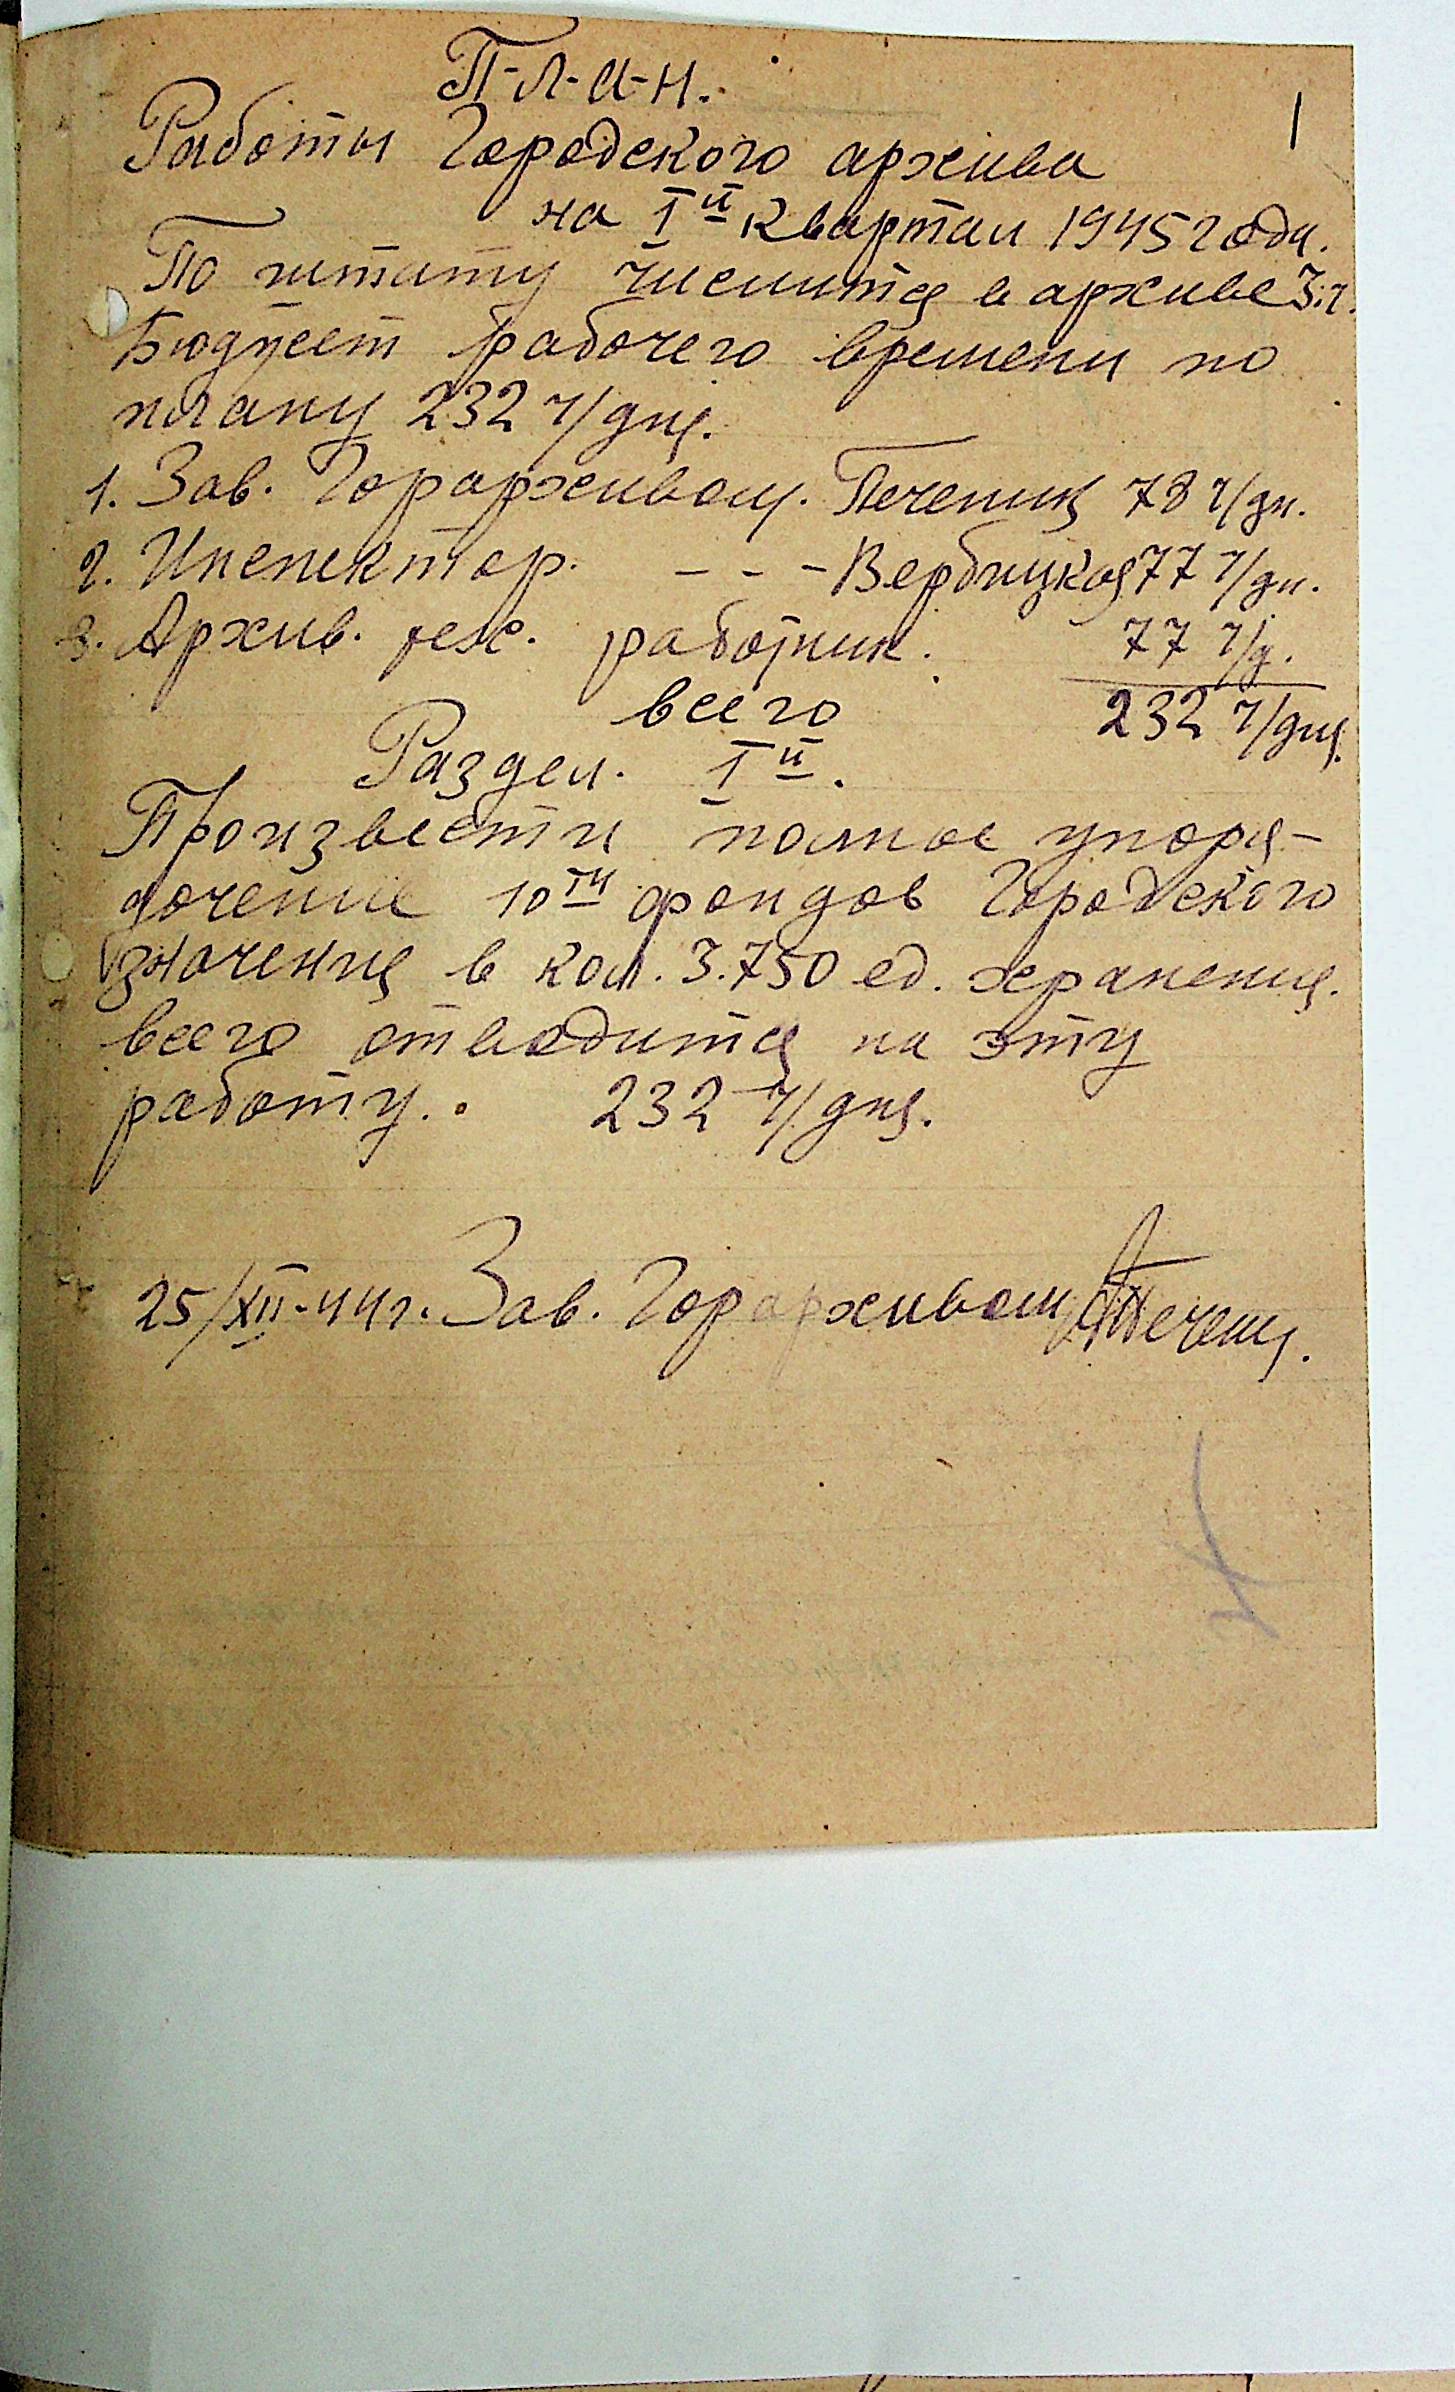 П-л-а-н.
1
Работы Городского архива
на I й квартал 1945 года.
По штату числится в архиве 3.ч.
Бюджет рабочего времени по
плану 232 ч/дня.
1. Зав. Горархивом. Печений 78 ч/дн.
2. Инспектор. - - - Вербицкая 77 ч/дн.
3. Архив. тех. работник. 77 ч/д.
всего 232 ч/дня.
Раздел. I й.
Произвести полное упоря-
дочение 10 ти фондов Городского
значения в кол. 3.750 ед. хранения.
всего отводится на эту
работу. 232 ч/дня.
25/XII-44г. Зав. Горархивом